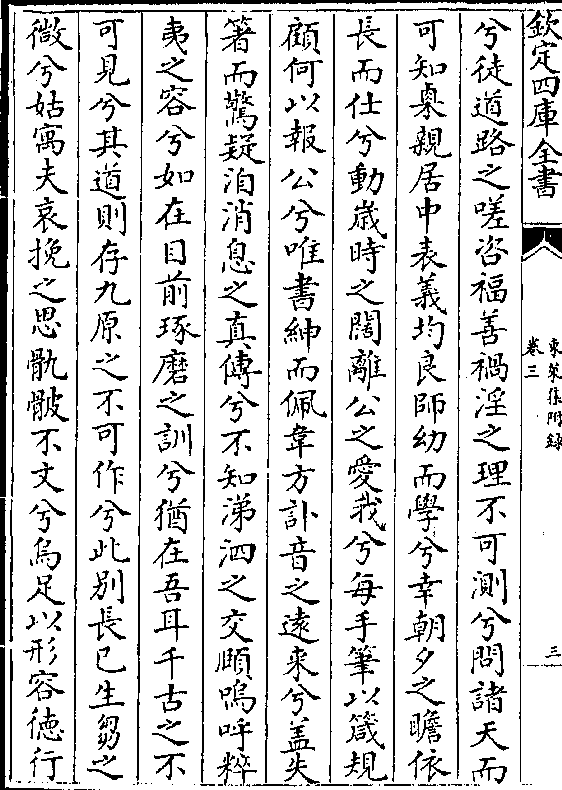 欽定四庫全書
東萊集附錄
卷三
三
兮徒道路之嗟咨福善禍淫之理不可測兮問諸天而
可知臬親居中表義均良師幼而學兮幸朝夕之瞻依
長而仕兮動歲時之闊離公之愛我兮每手筆以箴規
顧何以報公兮唯書紳而佩韋方訃音之遠来兮盖失
箸而驚疑洎消息之真傳兮不知涕泗之交頤嗚呼粹
夷之容兮如在目前琢磨之訓兮猶在吾耳千古之不
可見兮其道則存九原之不可作兮此别長已生芻之
微兮姑寓夫哀挽之思骩骳不文兮烏足以形容徳行